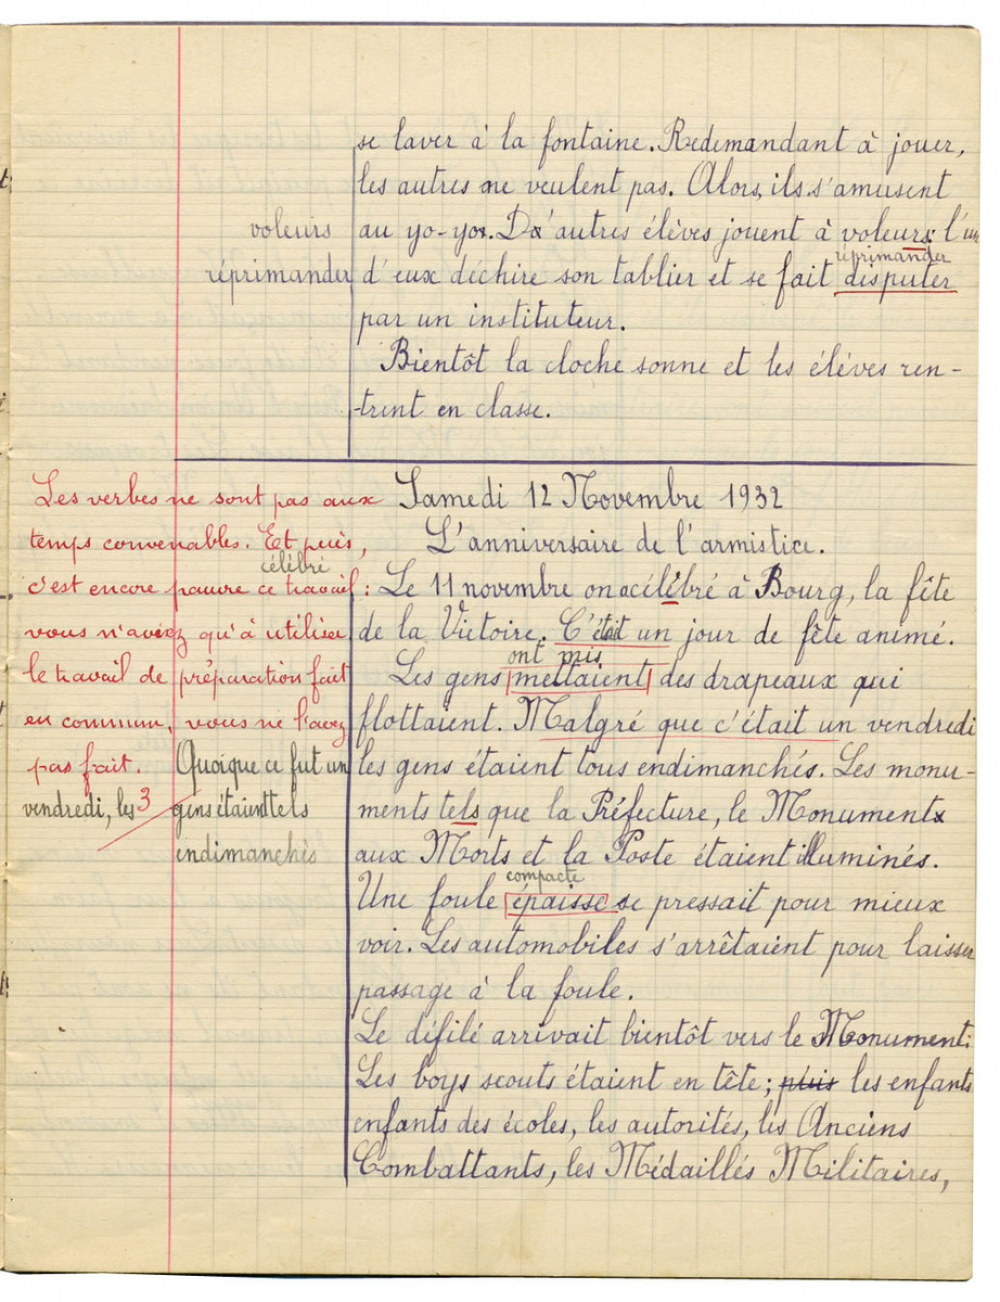 se laver à la fontaine. Redemandant à jouer,
les autres ne veulent pas. Alors, ils s'amusent
voleurs
au yo-yo. D'autres élèves jouent à voleurs: l'un
réprimander
réprimander
d'eux déchire son tablier et se fait disputer
par un instituteur.
Bientôt la cloche sonne et les élèves ren-
-trent en classe.
Les verbes ne sont pas aux
temps convenables. Et puis,
c'est encore pauvre ce travail :
vous n'aviez qu'à utiliser
le travail de préparation fait
en commun, vous ne l'avez
pas fait.
3
célébré
Quoique ce fut un
vendredi, les gens étaient tels
endimanchés
Samedi 12 Novembre 1932
L'anniversaire de l'armistice.
Le 11 novembre on a célébré à Bourg, la fête
de la Victoire. C'était un jour de fête animé.
ont mis
Les gens mettaient des drapeaux qui
flottaient. Malgré que c'était un vendredi
les gens étaient tous endimanchés. Les monu-
ments tels que la Préfecture, le Monument
aux Morts et la Poste étaient illuminés.
compacte
Une foule épaisse se pressait pour mieux
voir. Les automobiles s'arrêtaient pour laisser
passage à la foule.
Le défilé arrivait bientôt vers le Monument:
Les boys scouts étaient en tête; puis les enfants
enfants des écoles, les autorités, les Anciens
Combattants, les Médaillés Militaires,